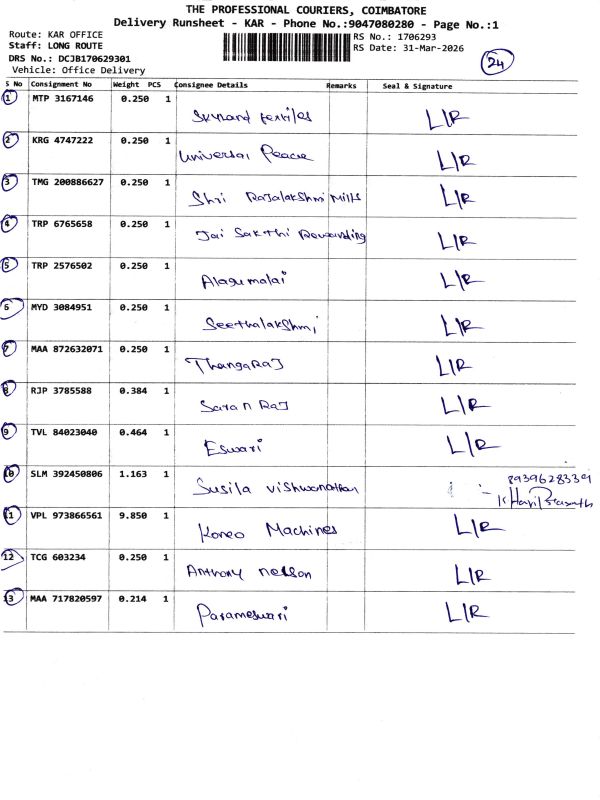 THE PROFESSIONAL COURIERS, COIMBATORE
Delivery Runsheet - KAR - Phone No.:9047080280 - Page No.:1
Route: KAR OFFICE
Staff: LONG ROUTE
DRS No.: DCJB170629301
Vehicle: Office Delivery
RS No.: 1706293
RS Date: 31-Mar-2026
24
S No Consignment No Weight PCS Consignee Details Remarks Seal & Signature
1 MTP 3167146 0.250 1 textiles L/R
2 KRG 4747222 0.250 1 Universal Peace L/R
3 TMG 200886627 0.250 1 Shri Rajalakshmi Mills L/R
4 TRP 6765658 0.250 1 Jai Sakthi L/R
5 TRP 2576502 0.250 1 Alagumalai L/R
6 MYD 3084951 0.250 1 Seethalakshmi L/R
7 MAA 872632071 0.250 1 ThangaRaJ L/R
8 RJP 3785588 0.384 1 Saran RaJ L/R
9 TVL 84023040 0.464 1 Eswari L/R
10 SLM 392450806 1.163 1 Susila vishwanathan 8939628339
11 VPL 973866561 9.850 1 Koneo Machines L/R
12 TCG 603234 0.250 1 Anthony nelson L/R
13 MAA 717820597 0.214 1 Parameswari L/R